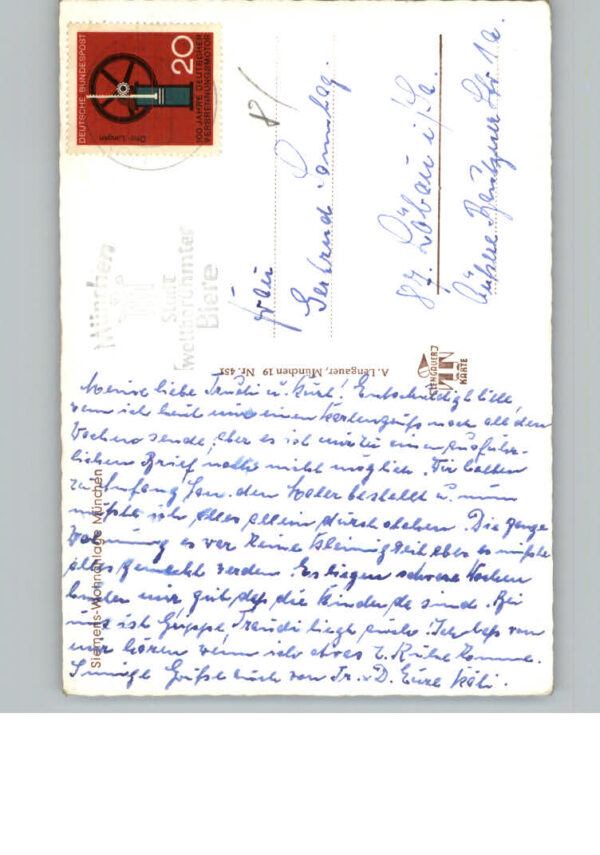 DEUTSCHE BUNDESPOST
20
100 JAHRE DEUTSCHER
VERBRENNUNGSMOTOR
Otto-Langen
München
Stadt
weltberühmter
Biere
81
Frau
Gertrud
87. Löbau i/Sa.
Äußere Bautzner
LENGAUER
KARTE
A. Lengauer, München 19 Nr. 451
Siemens-Wohnanlage München
Meine liebe Trudi u. Kurt! Entschuldigt bitte,
wenn ich heut nur einen Kartengruß nach all den
Wochen sende, aber es ist mir zu einem ausführ-
lichen Brief nicht möglich. Wir hatten
zu Anfang Jan. den Maler bestellt u. nun
mußte ich alles allein durchstehen. Die ganze
Wohnung es war keine Kleinigkeit aber es mußte
alles gemacht werden. Es liegen schwere Wochen
hinter mir gut daß die Kinder da sind. Bei
uns ist Grippe Traudi liegt auch! Ich laß von
mir hören wenn ich etwas z. Ruhe komme.
Innige Grüße Euch von Tr. D. Eure